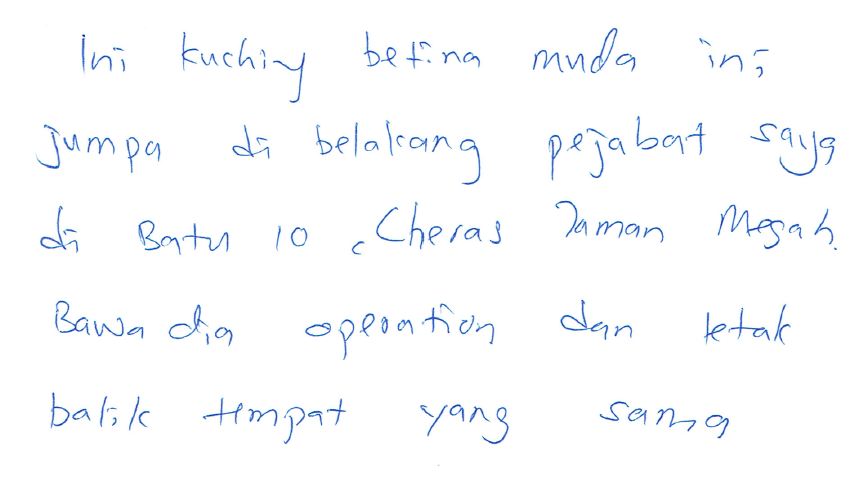 Ini kuching betina muda ini
jumpa di belakang pejabat saya
di Batu 10, Cheras Taman Megah.
Bawa dia operation dan letak
balik tempat yang sama